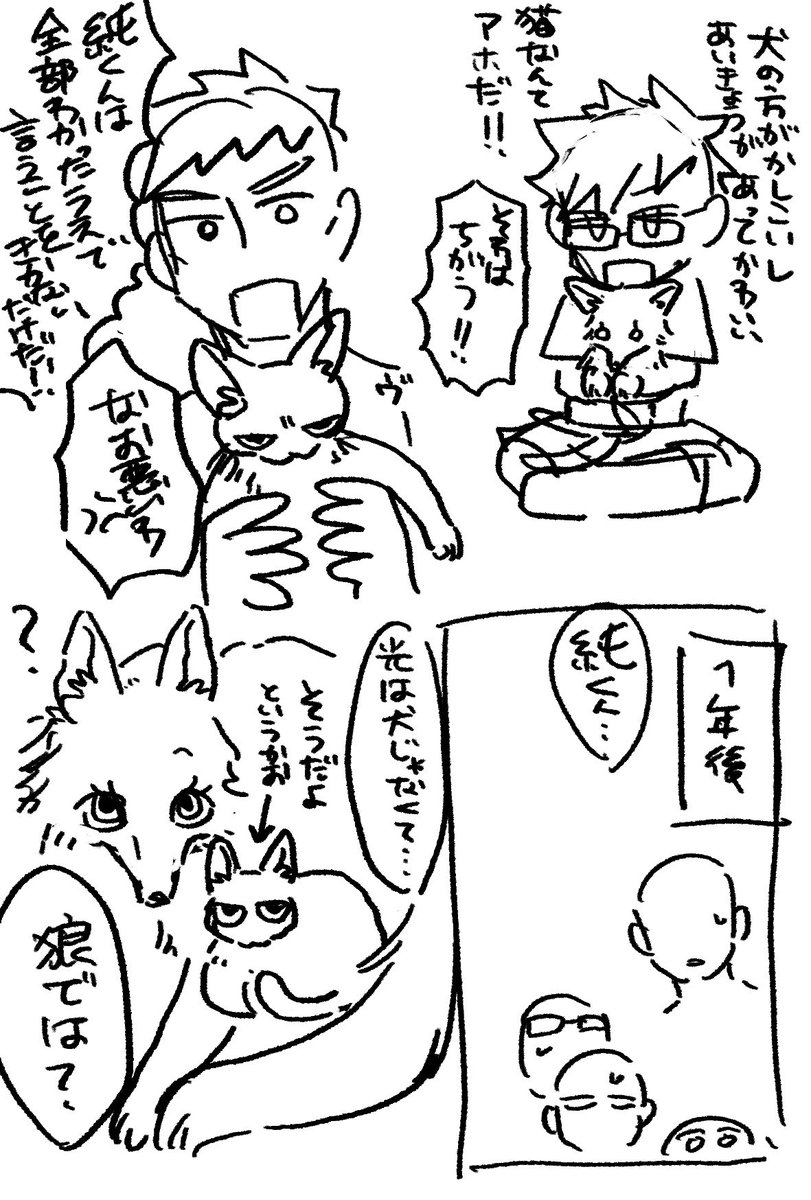 犬の方がかしこいし
あいきょうが
あってかわいい
猫なんて
アホだ!!
それは
ちがう!!
純くんは
全部わかったうえで
言うことをきかない
だけだ!!
ヴ
なお悪いわ
1年後
純くん…
光は犬じゃなくて…
そうだよ
というかお
?
狼では?